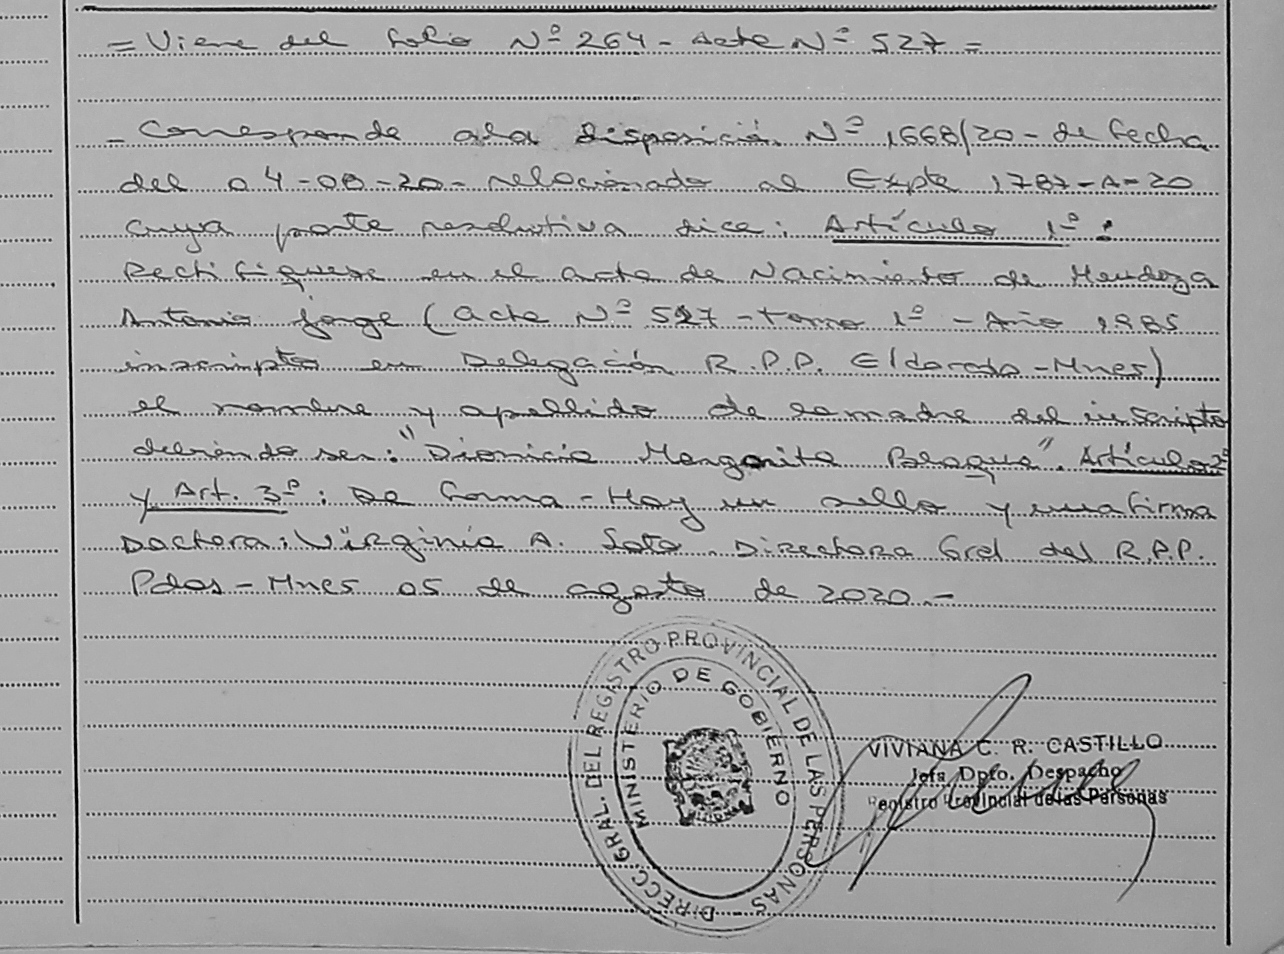 = Viene del folio Nº 264 - Acta Nº 527 =
- Corresponde a la Disposición Nº 1668/20 - de fecha
del 04-08-20 - relacionado al Expte 1787-A-20
cuya parte resolutiva dice: Artículo 1º:
Rectifíquese en el acta de Nacimiento de Mendoza
Antonio Jorge (acta Nº 527 - tomo 1º - Año 1985
inscripto en Delegación R.P.P. Eldorado - Mnes)
el nombre y apellido de la madre del inscripto
debiendo ser: "Dionicia Margarita". Artículo 2º
y Art. 3º: De forma - Hay un sello y una firma
Doctora: Virginia A. Soto. Directora Gral del R.P.P.
Pdas - Mnes 05 de agosto de 2020.-
DIRECC. GRAL. DEL REGISTRO PROVINCIAL DE LAS PERSONAS
MINISTERIO DE GOBIERNO
VIVIANA C. R. CASTILLO
Jefa Dpto. Despacho
Registro Provincial de las Personas